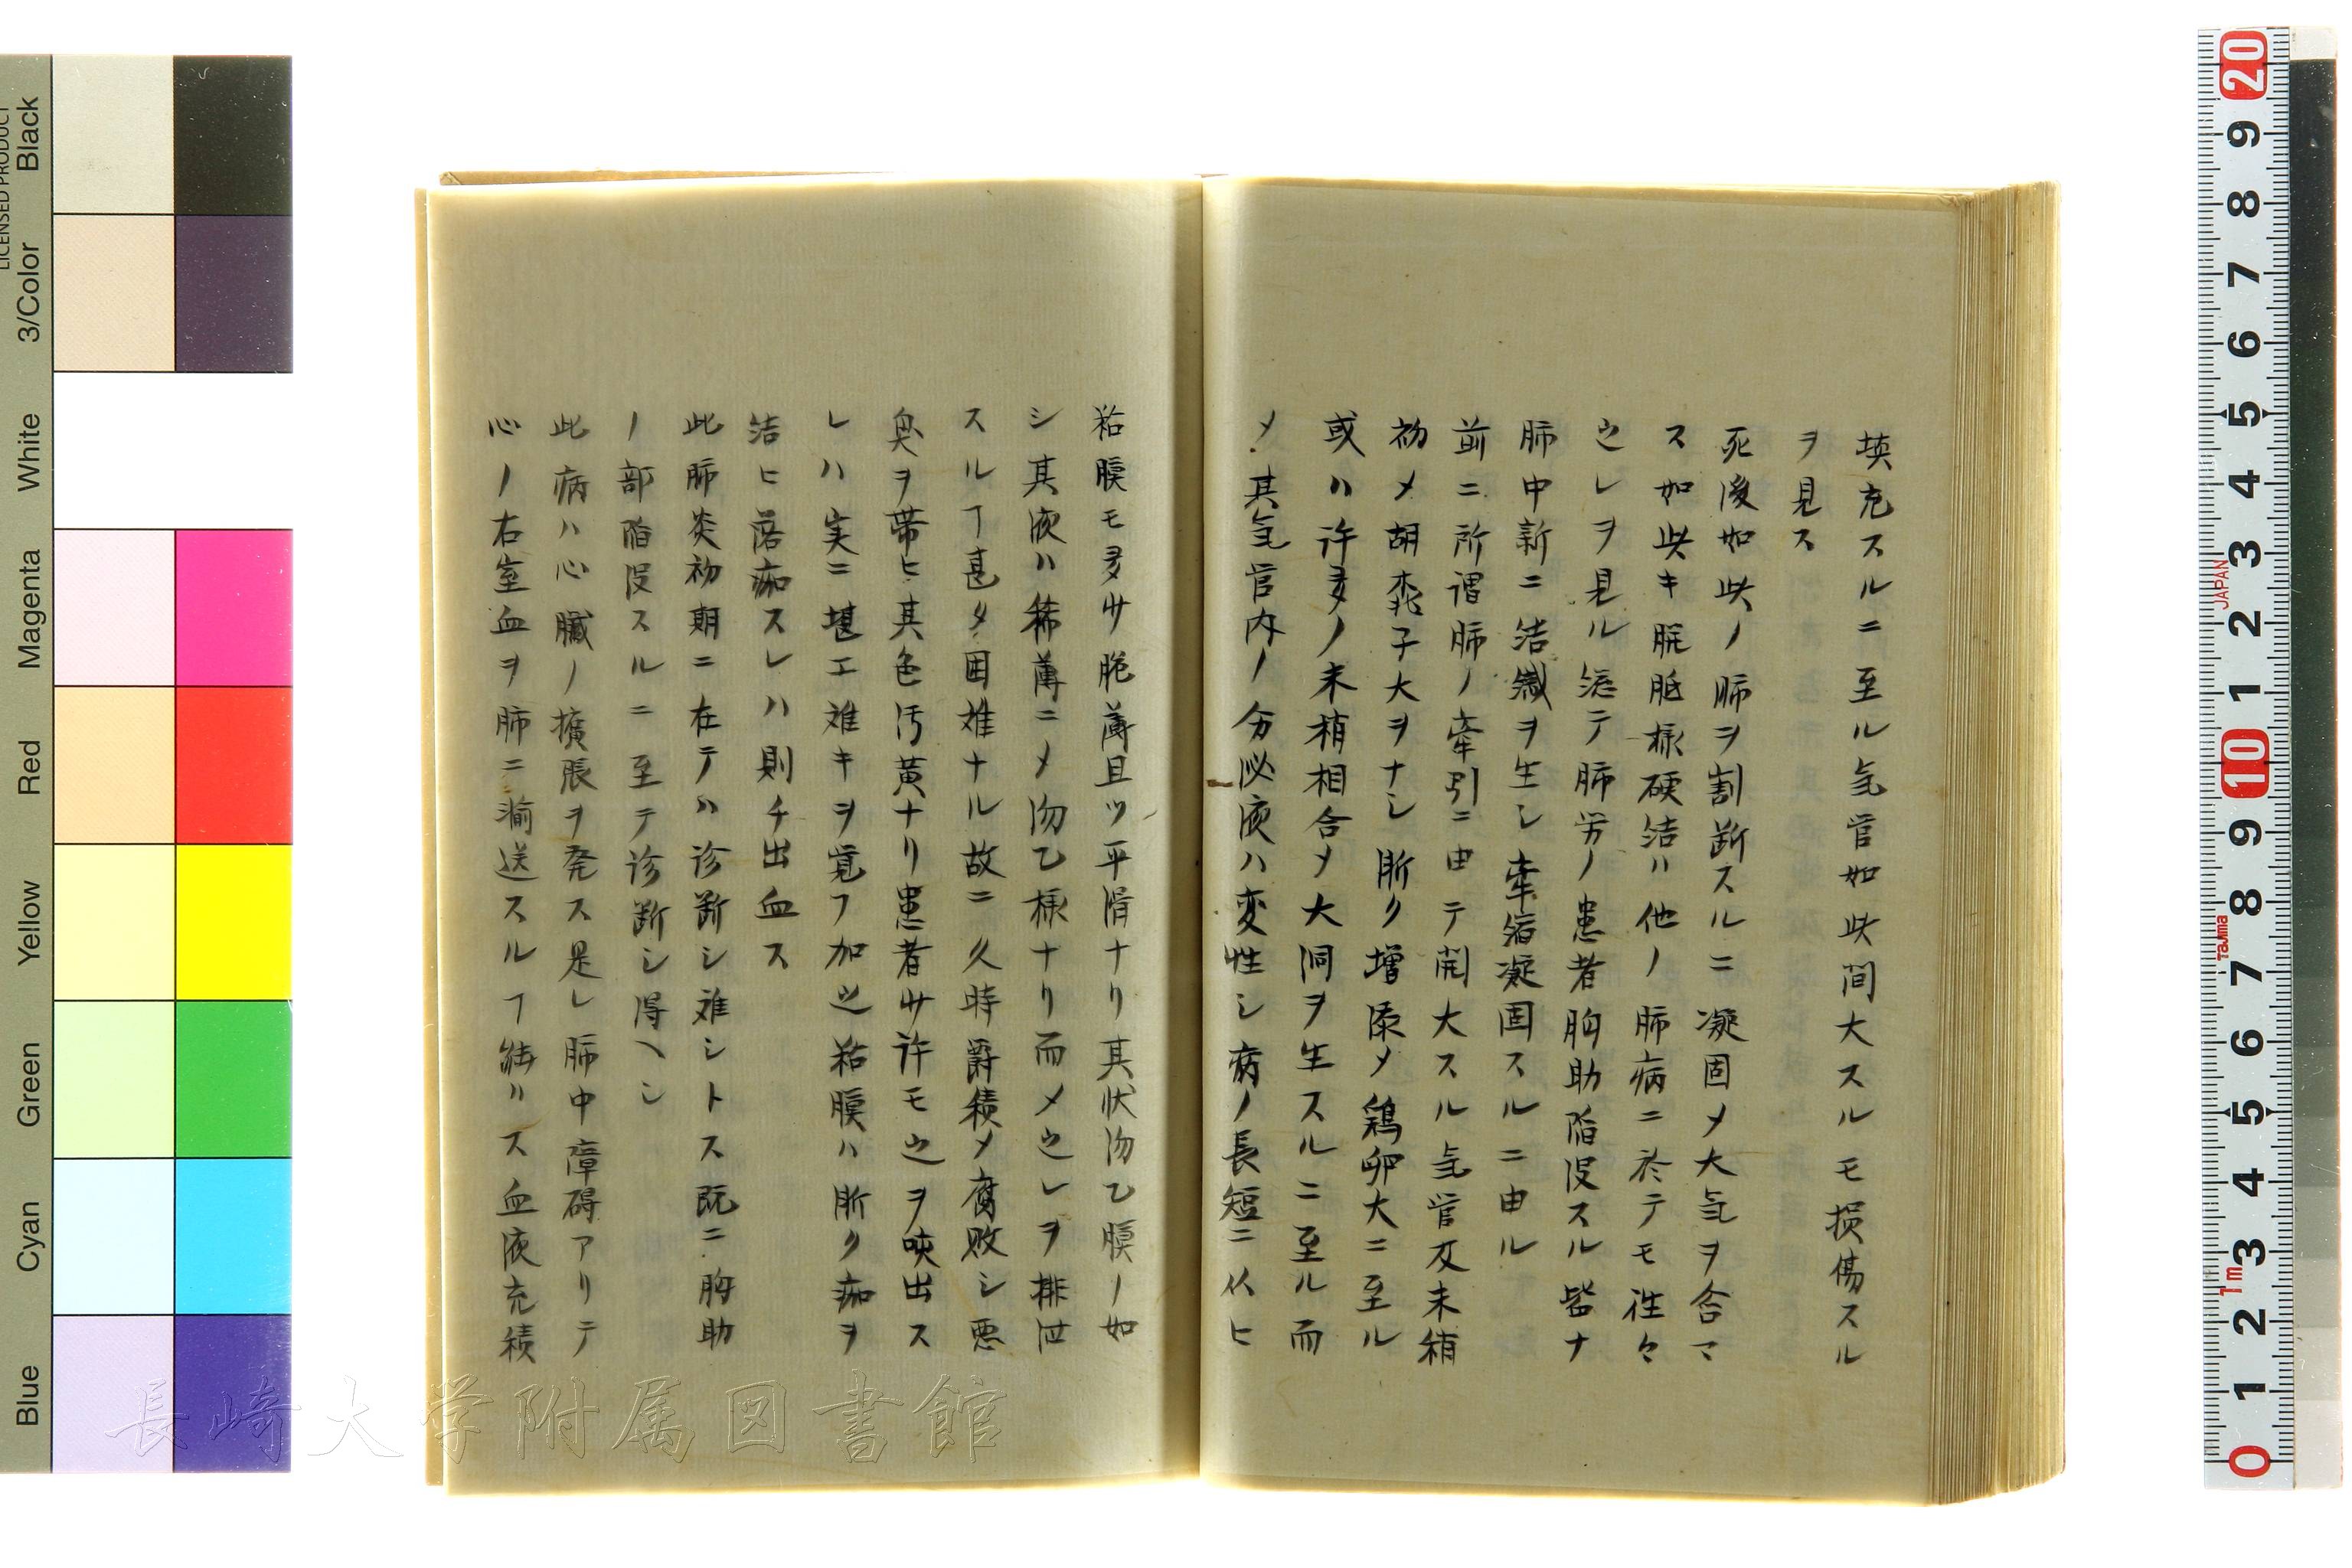 填充スルニ至ル気管如此間大スルモ損傷スル
ヲ見ス
死後如此ノ肺ヲ割断スルニ凝固メ大気ヲ含マ
ス如此キ胼胝様硬結ハ他ノ肺病ニ於テモ往々
之レヲ見ル総テ肺労ノ患者胸肋陥没スル皆ナ
肺中新ニ結織ヲ生シ牽縮凝固スルニ由ル
前ニ所謂肺ノ牽引ニ由テ開大スル気管支末梢
初メ胡桃子大ヲナシ漸ク増添メ鶏卵大ニ至ル
或ハ許多ノ末梢相合メ大洞ヲ生スルニ至ル而
メ其気管内ノ分泌液ハ変性シ病ノ長短ニ从ヒ
粘膜モ多少脆薄且ツ平滑ナリ其状沕乙膜ノ如
シ其液ハ稀薄ニメ沕乙様ナリ而メ之レヲ排泄
スルヿ甚タ困難ナル故ニ久時爵積メ腐敗シ悪
臭ヲ帯ヒ其色汚黄ナリ患者少許モ之ヲ咳出ス
レハ実ニ堪エ難キヲ覚フ加之粘膜ハ漸ク痂ヲ
結ヒ落痂スレハ則チ出血ス
此肺炎初期ニ在テハ診断シ難シトス既ニ胸肋
ノ部陥没スルニ至テ診断シ得ヘシ
此病ハ心臓ノ擴脹ヲ発ス是レ肺中障碍アリテ
心ノ右室血ヲ肺ニ渝送スルヿ能ハス血液充積
長崎大学附属図書館
Black
3/Color
White
Magenta
Red
Yellow
Green
Cyan
Blue
LICENSED PRODUCT
20 9 8 7 6 5 4 3 2 1 10 9 8 7 6 5 4 3 2 1 0
JAPAN
Tajima
1m